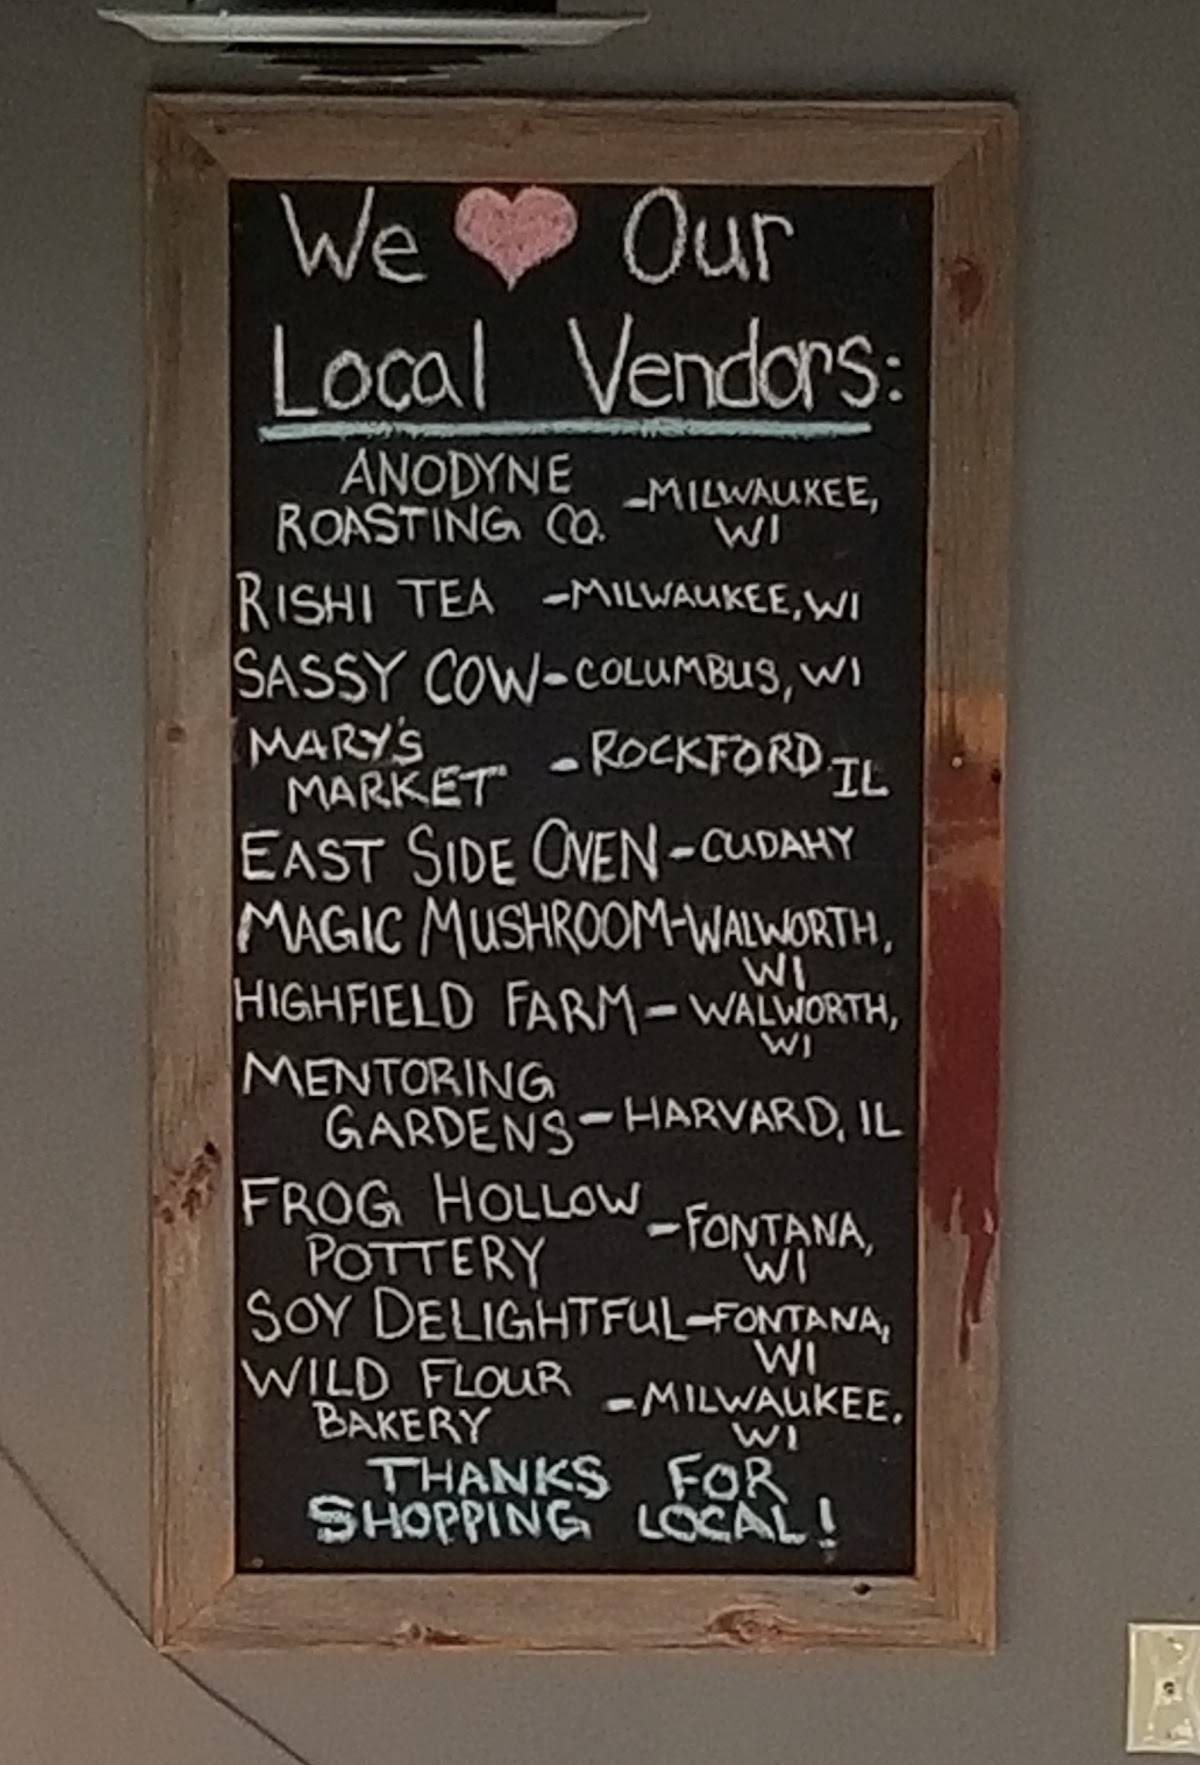 We ♥ Our
Local Vendors:
ANODYNE
ROASTING CO. -MILWAUKEE,
WI
RISHI TEA -MILWAUKEE, WI
SASSY COW-COLUMBUS, WI
MARY'S
MARKET - ROCKFORD, IL
EAST SIDE OVEN-CUDAHY
MAGIC MUSHROOM-WALWORTH,
WI
HIGHFIELD FARM-WALWORTH,
WI
MENTORING
GARDENS-HARVARD, IL
FROG HOLLOW
POTTERY -FONTANA,
WI
SOY DELIGHTFUL-FONTANA,
WI
WILD FLOUR
BAKERY -MILWAUKEE,
WI
THANKS FOR
SHOPPING LOCAL!